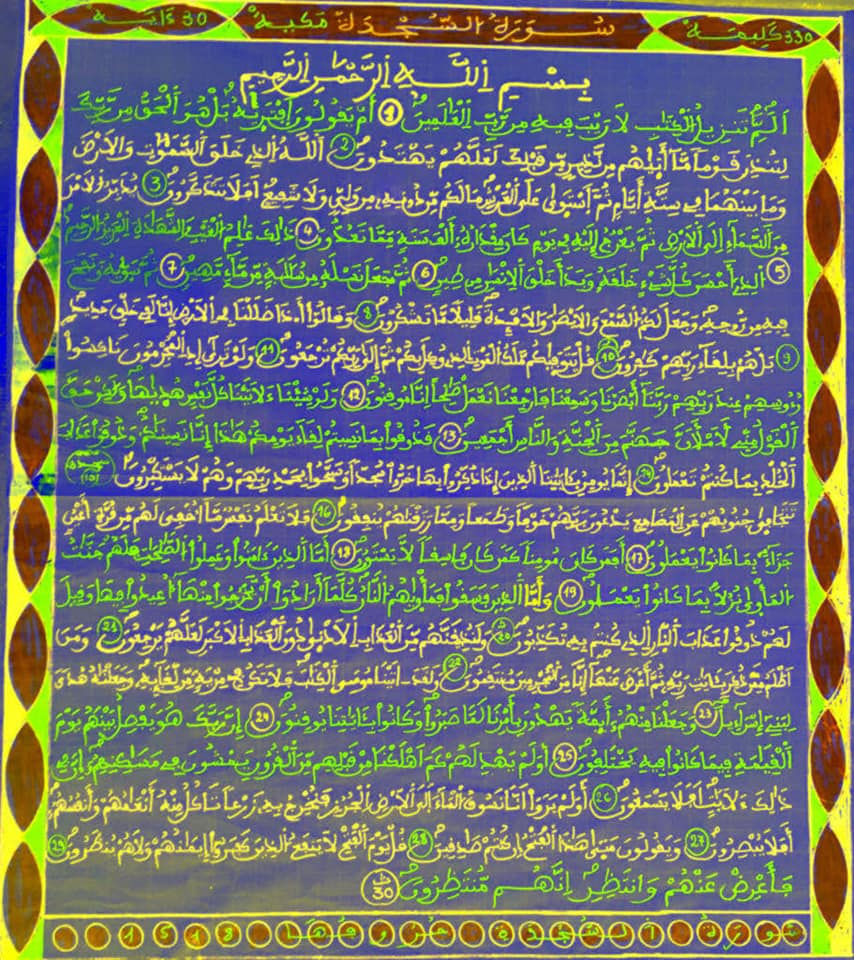 330 كليمة سورة السجدة مكية 30 ءاية
بسم الله الرحمن الرحيم
الم تنزيل الكتب لا ريب فيه من رب العلمين 1 أم يقولون افتريه بل هو الحق من ربك
لتنذر قوما ما أتيهم من نذير من قبلك لعلهم يهتدون 2 الله الذي خلق السموت والارض
وما بينهما في ستة أيام ثم استوى على العرش ما لكم من دونه من ولي ولا شفيع أفلا تتذكرون 3 يدبر الامر
من السماء إلى الارض ثم يعرج إليه في يوم كان مقداره ألف سنة مما تعدون 4 ذلك علم الغيب والشهدة العزيز الرحيم
5 الذي أحسن كل شيء خلقه وبدأ خلق الانسن من طين 6 ثم جعل نسله من سللة من ماء مهين 7 ثم سويه ونفخ
فيه من روحه وجعل لكم السمع والابصر والافدة قليلا ما تشكرون 8 وقالوا أءذا ضللنا في الارض إنا لفي خلق جديد
9 بل هم بلقاء ربهم كفرون 10 قل يتوفيكم ملك الموت الذي وكل بكم ثم إلى ربكم ترجعون 11 ولو ترى إذ المجرمون ناكسوا
رءوسهم عند ربهم ربنا أبصرنا وسمعنا فارجعنا نعمل صلحا إنا موقنون 12 ولو شئنا ءلاتينا كل نفس هديها ولكن حق
القول مني لأملأن جهنم من الجنة والناس أجمعين 13 فذوقوا بما نسيتم لقاء يومكم هذا إنا نسينكم وذوقوا عذاب
الخلد بما كنتم تعملون 14 إنما يومن بءايتنا الذين إذا ذكروا بها خروا سجدا وسبحوا بحمد ربهم وهم لا يستكبرون سجدة (10)
تتجافى جنوبهم عن المضاجع يدعون ربهم خوفا وطمعا ومما رزقنهم ينفقون 16 فلا تعلم نفس ما أخفي لهم من قرة أعين
جزاء بما كانوا يعملون 17 أفمن كان مومنا كمن كان فاسقا لا يستون 18 أما الذين ءامنوا وعملوا الصلحت فلهم جنت
المأوى نزلا بما كانوا يعملون 19 وأما الذين فسقوا فمأويهم النار كلما أرادوا أن يخرجوا منها أعيدوا فيها وقيل
لهم ذوقوا عذاب النار الذي كنتم به تكذبون 20 ولنذيقنهم من العذاب الادنى دون العذاب الاكبر لعلهم يرجعون 21 ومن
اظلم ممن ذكر بءايت ربه ثم أعرض عنها إنا من المجرمين منتقمون 22 ولقد اتينا موسى الكتب فلا تكن في مرية من لقايه وجعلنه هدى
لبني إسراءيل 23 وجعلنا منهم أيمة يهدون بأمرنا لما صبروا وكانوا بءايتنا يوقنون 24 إن ربك هو يفصل بينهم يوم
القيمة فيما كانوا فيه يختلفون 25 أولم يهد لهم كم أهلكنا من قبلهم من القرون يمشون في مسكنهم إن في
ذلك ءلايت أفلا يسمعون 26 أولم يروا انا نسوق الماء إلى الارض الجرز فنخرج به زرعا تاكل منه أنعمهم وأنفسهم
أفلا يبصرون 27 ويقولون متى هذا الفتح إن كنتم صدقين 28 قل يوم الفتح لا ينفع الذين كفروا إيمنهم ولا هم ينظرون 29
فأعرض عنهم وانتظر انهم منتظرون 30
سورة السجدة حروفها 1518